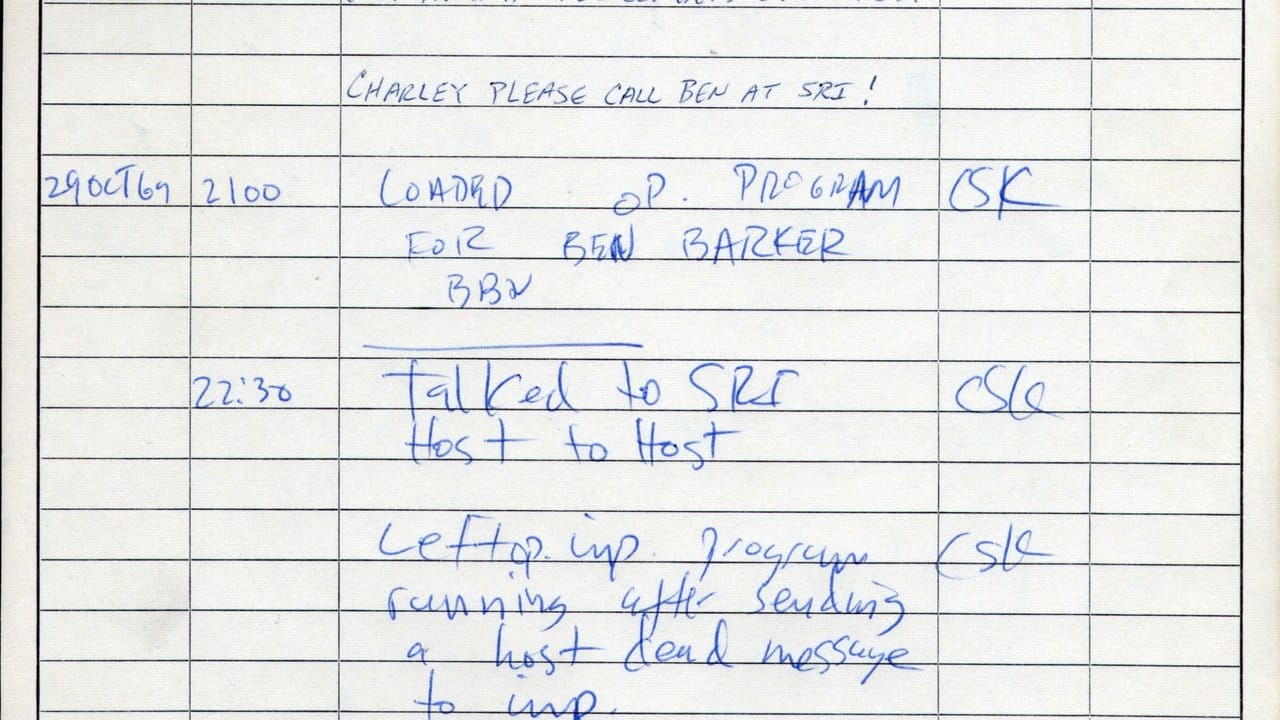 CHARLEY PLEASE CALL BEN AT SRI!
29OCT69 2100 LOADED OP. PROGRAM CSK
FOR BEN BARKER
BBN
22:30 Talked to SRI CSK
Host to Host
Left op. imp. program CSK
running after sending
a host dead message
to imp.